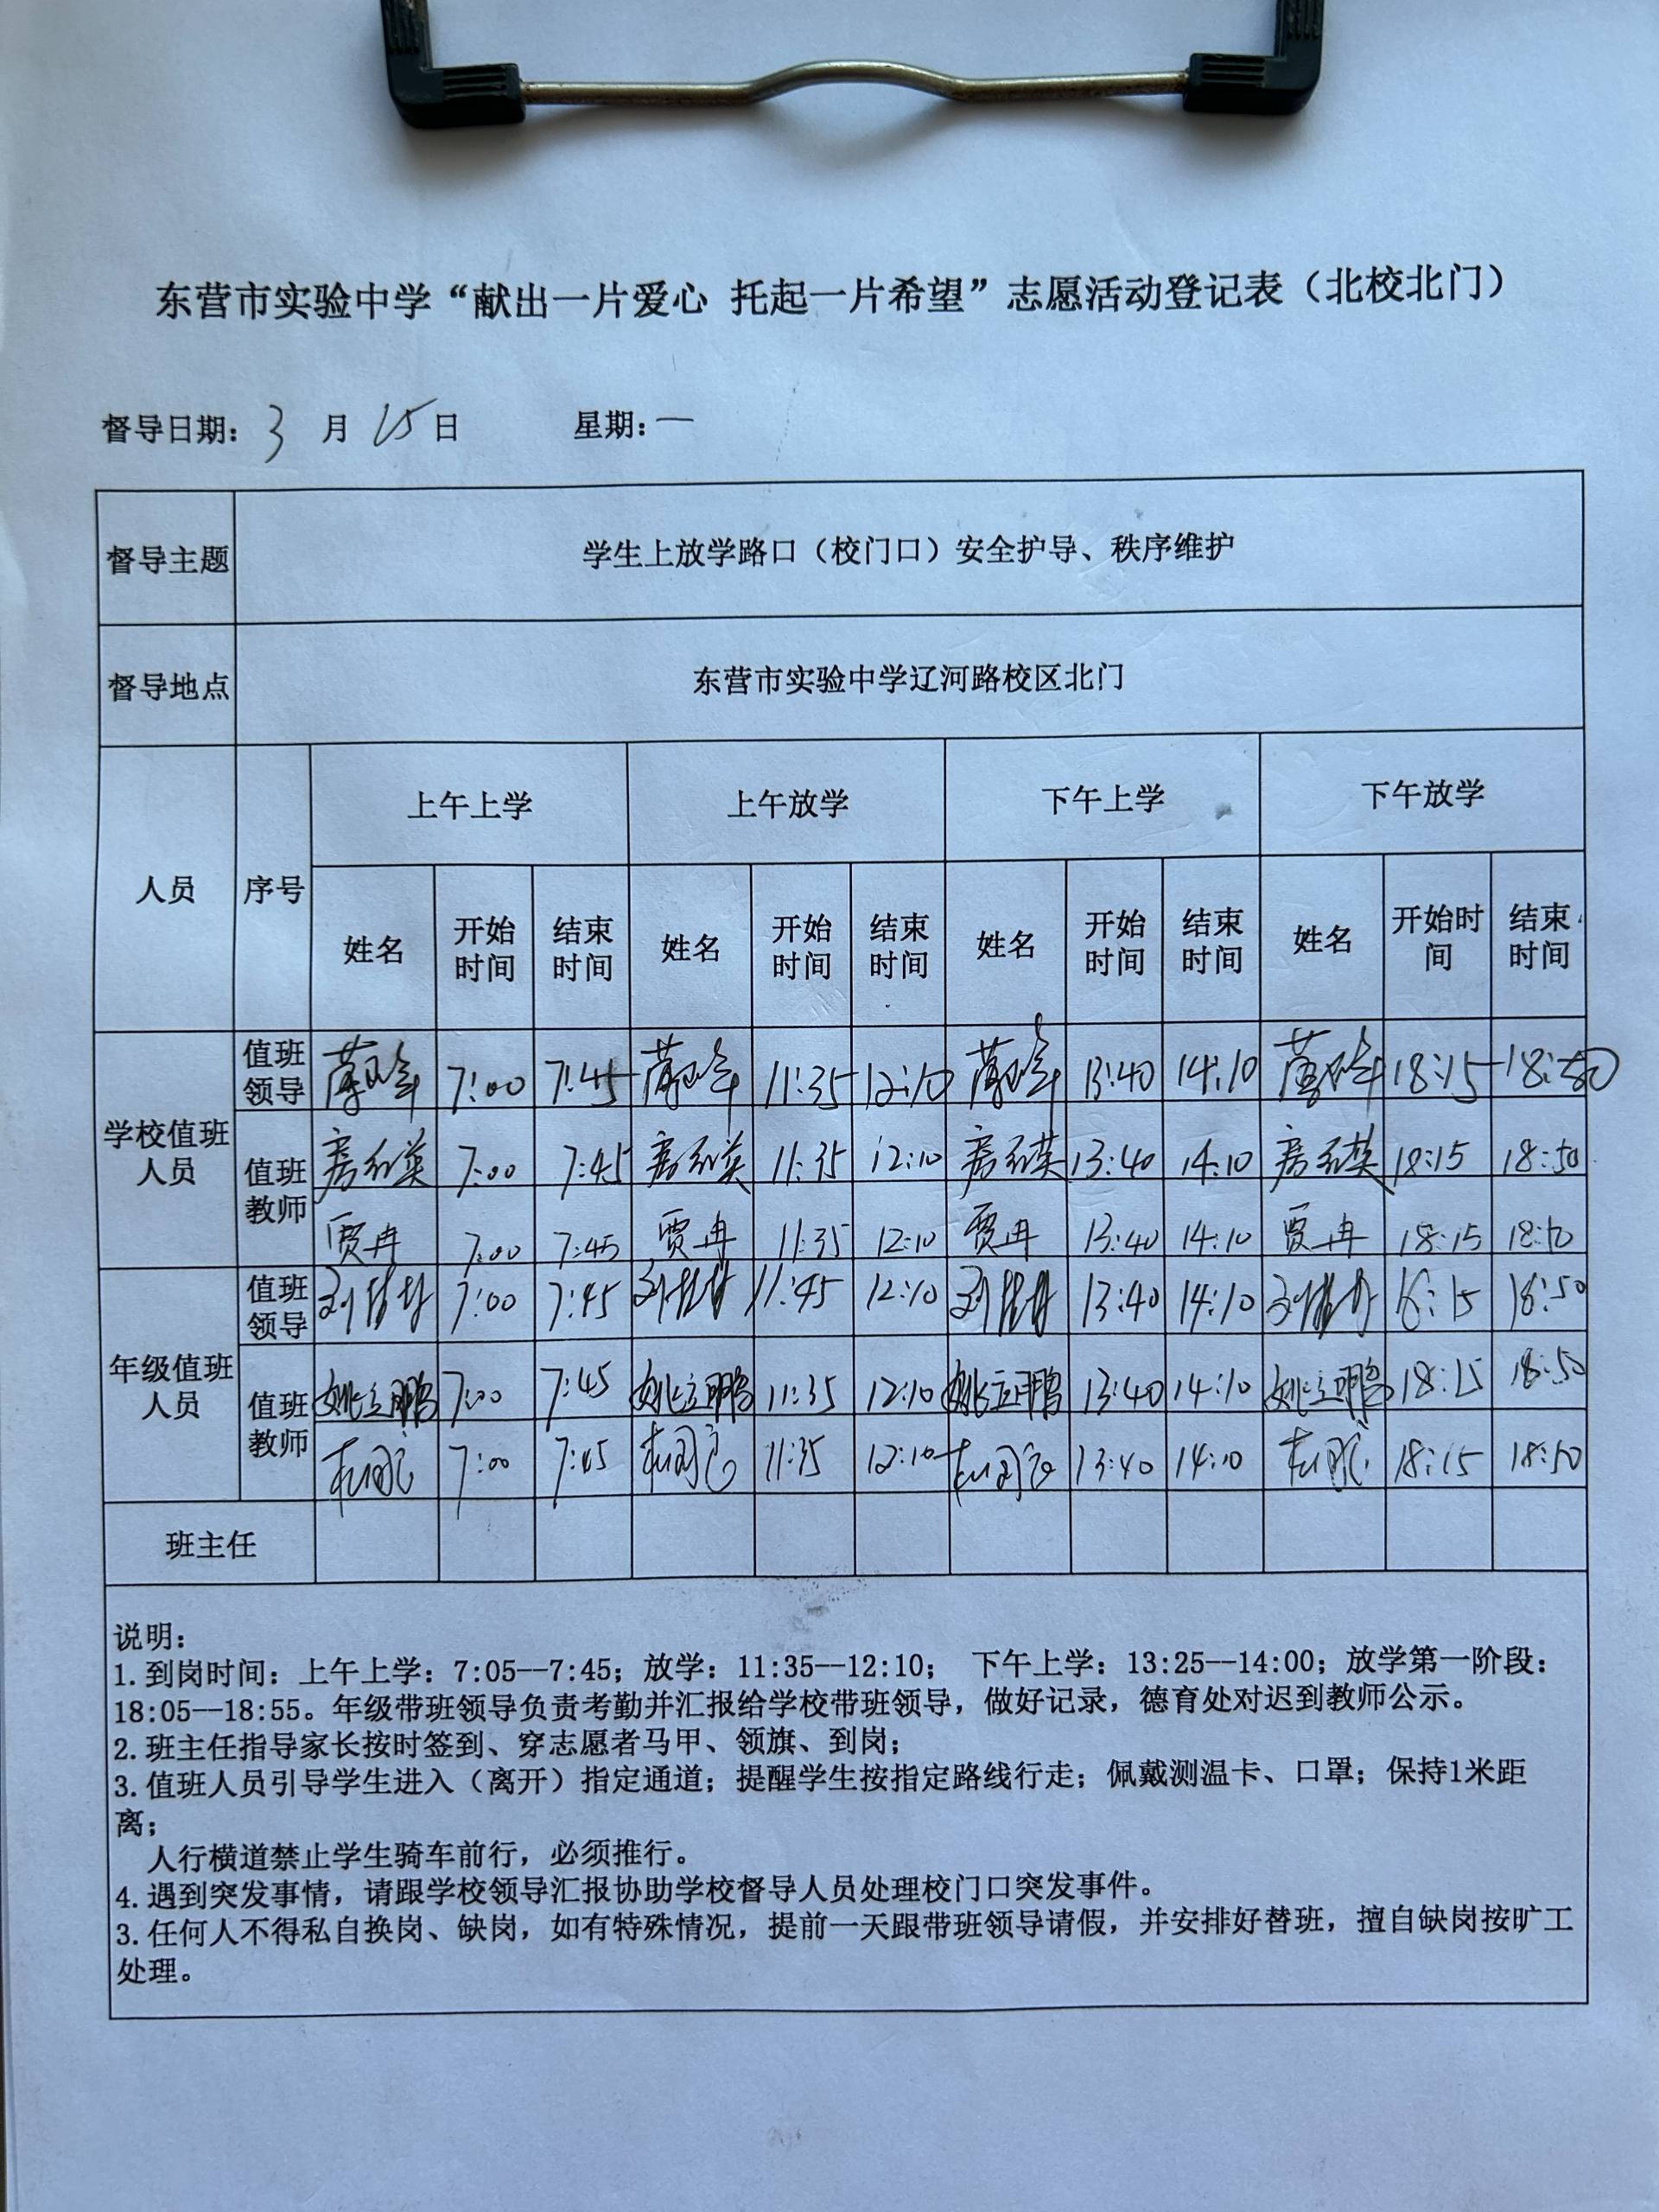 东营市实验中学“献出一片爱心 托起一片希望”志愿活动登记表（北校北门）
督导日期：3 月 15 日 星期：一
督导主题 学生上放学路口（校门口）安全护导、秩序维护
督导地点 东营市实验中学辽河路校区北门
人员 序号 上午上学 上午放学 下午上学 下午放学
姓名 开始时间 结束时间 姓名 开始时间 结束时间 姓名 开始时间 结束时间 姓名 开始时间 结束时间
学校值班人员 值班领导 7:00 7:45 11:35 12:10 13:40 14:10 18:15 18:50
值班教师 房红英 7:00 7:45 房红英 11:35 12:10 房红英 13:40 14:10 房红英 18:15 18:50
贾冉 7:00 7:45 贾冉 11:35 12:10 贾冉 13:40 14:10 贾冉 18:15 18:50
年级值班人员 值班领导 7:00 7:45 11:45 12:10 13:40 14:10 18:15 18:50
值班教师 姚立鹏 7:00 7:45 姚立鹏 11:35 12:10 姚立鹏 13:40 14:10 姚立鹏 18:15 18:50
7:00 7:45 11:35 12:10 13:40 14:10 18:15 18:50
班主任
说明：
1.到岗时间：上午上学：7:05--7:45；放学：11:35--12:10； 下午上学：13:25--14:00；放学第一阶段：
18:05--18:55。年级带班领导负责考勤并汇报给学校带班领导，做好记录，德育处对迟到教师公示。
2.班主任指导家长按时签到、穿志愿者马甲、领旗、到岗；
3.值班人员引导学生进入（离开）指定通道；提醒学生按指定路线行走；佩戴测温卡、口罩；保持1米距
离；
人行横道禁止学生骑车前行，必须推行。
4.遇到突发事情，请跟学校领导汇报协助学校督导人员处理校门口突发事件。
3.任何人不得私自换岗、缺岗，如有特殊情况，提前一天跟带班领导请假，并安排好替班，擅自缺岗按旷工
处理。